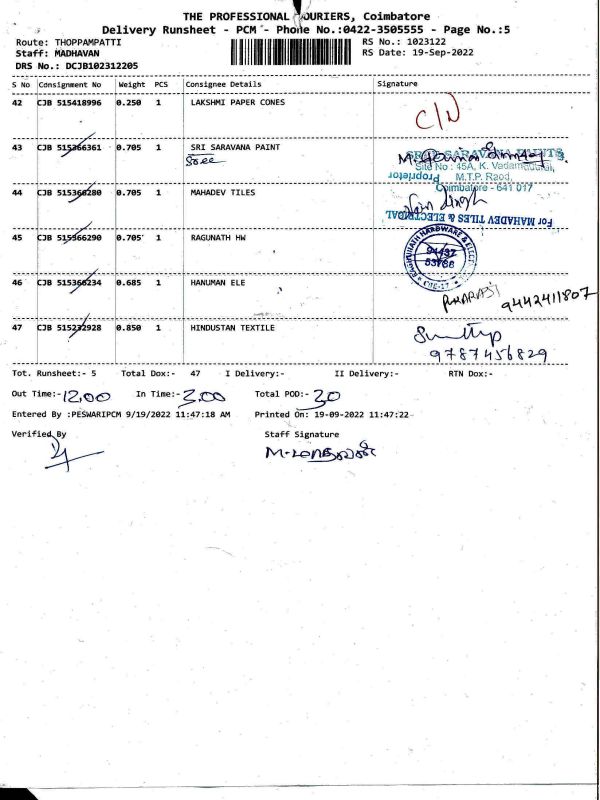 THE PROFESSIONAL COURIERS, Coimbatore
Delivery Runsheet - PCM - Phone No.:0422-3505555 - Page No.:5
Route: THOPPAMPATTI RS No.: 1023122
Staff: MADHAVAN RS Date: 19-Sep-2022
DRS No.: DCJB102312205
S No Consignment No Weight PCS Consignee Details Signature
42 CJB 515418996 0.250 1 LAKSHMI PAPER CONES C/N
43 CJB 515366361 0.705 1 SRI SARAVANA PAINT
Sree
SRI SARAVANA PAINTS
Site No : 45A, K. Vadamadurai,
M.T.P. Raod,
Proprietor
Coimbatore - 641 017
44 CJB 515366280 0.705 1 MAHADEV TILES
For MAHADEV TILES & ELECTRICAL
45 CJB 515366290 0.705 1 RAGUNATH HW
94437
53768
46 CJB 515366234 0.685 1 HANUMAN ELE
9442411807
47 CJB 515232928 0.850 1 HINDUSTAN TEXTILE
9787456829
Tot. Runsheet:- 5 Total Dox:- 47 I Delivery:- II Delivery:- RTN Dox:-
Out Time:- 12.00 In Time:- 3.00 Total POD:- 30
Entered By :PESWARIPCM 9/19/2022 11:47:18 AM Printed On: 19-09-2022 11:47:22
Verified By Staff Signature
M-மாதவன்